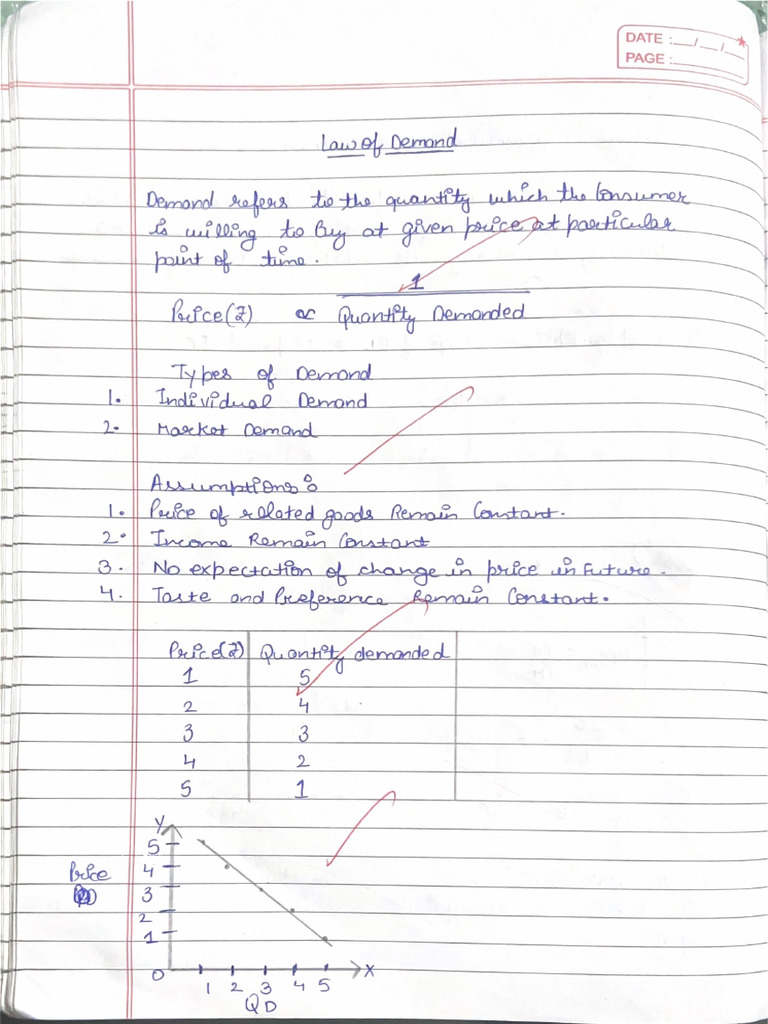 DATE :__/__/__
PAGE :______
Law of Demand
Demand refers to the quantity which the Consumer
is willing to Buy at given price at particular
point of time.
1
Price(₹) ∝ Quantity Demanded
Types of Demand
1. Individual Demand
2. Market Demand
Assumptions :
1. Price of related goods Remain Constant.
2. Income Remain Constant
3. No expectation of change in price in Future.
4. Taste and Preference Remain Constant.
Price(₹) Quantity demanded
1 5
2 4
3 3
4 2
5 1
Y
5
4
Price
3
2
1
0 X
1 2 3 4 5
QD